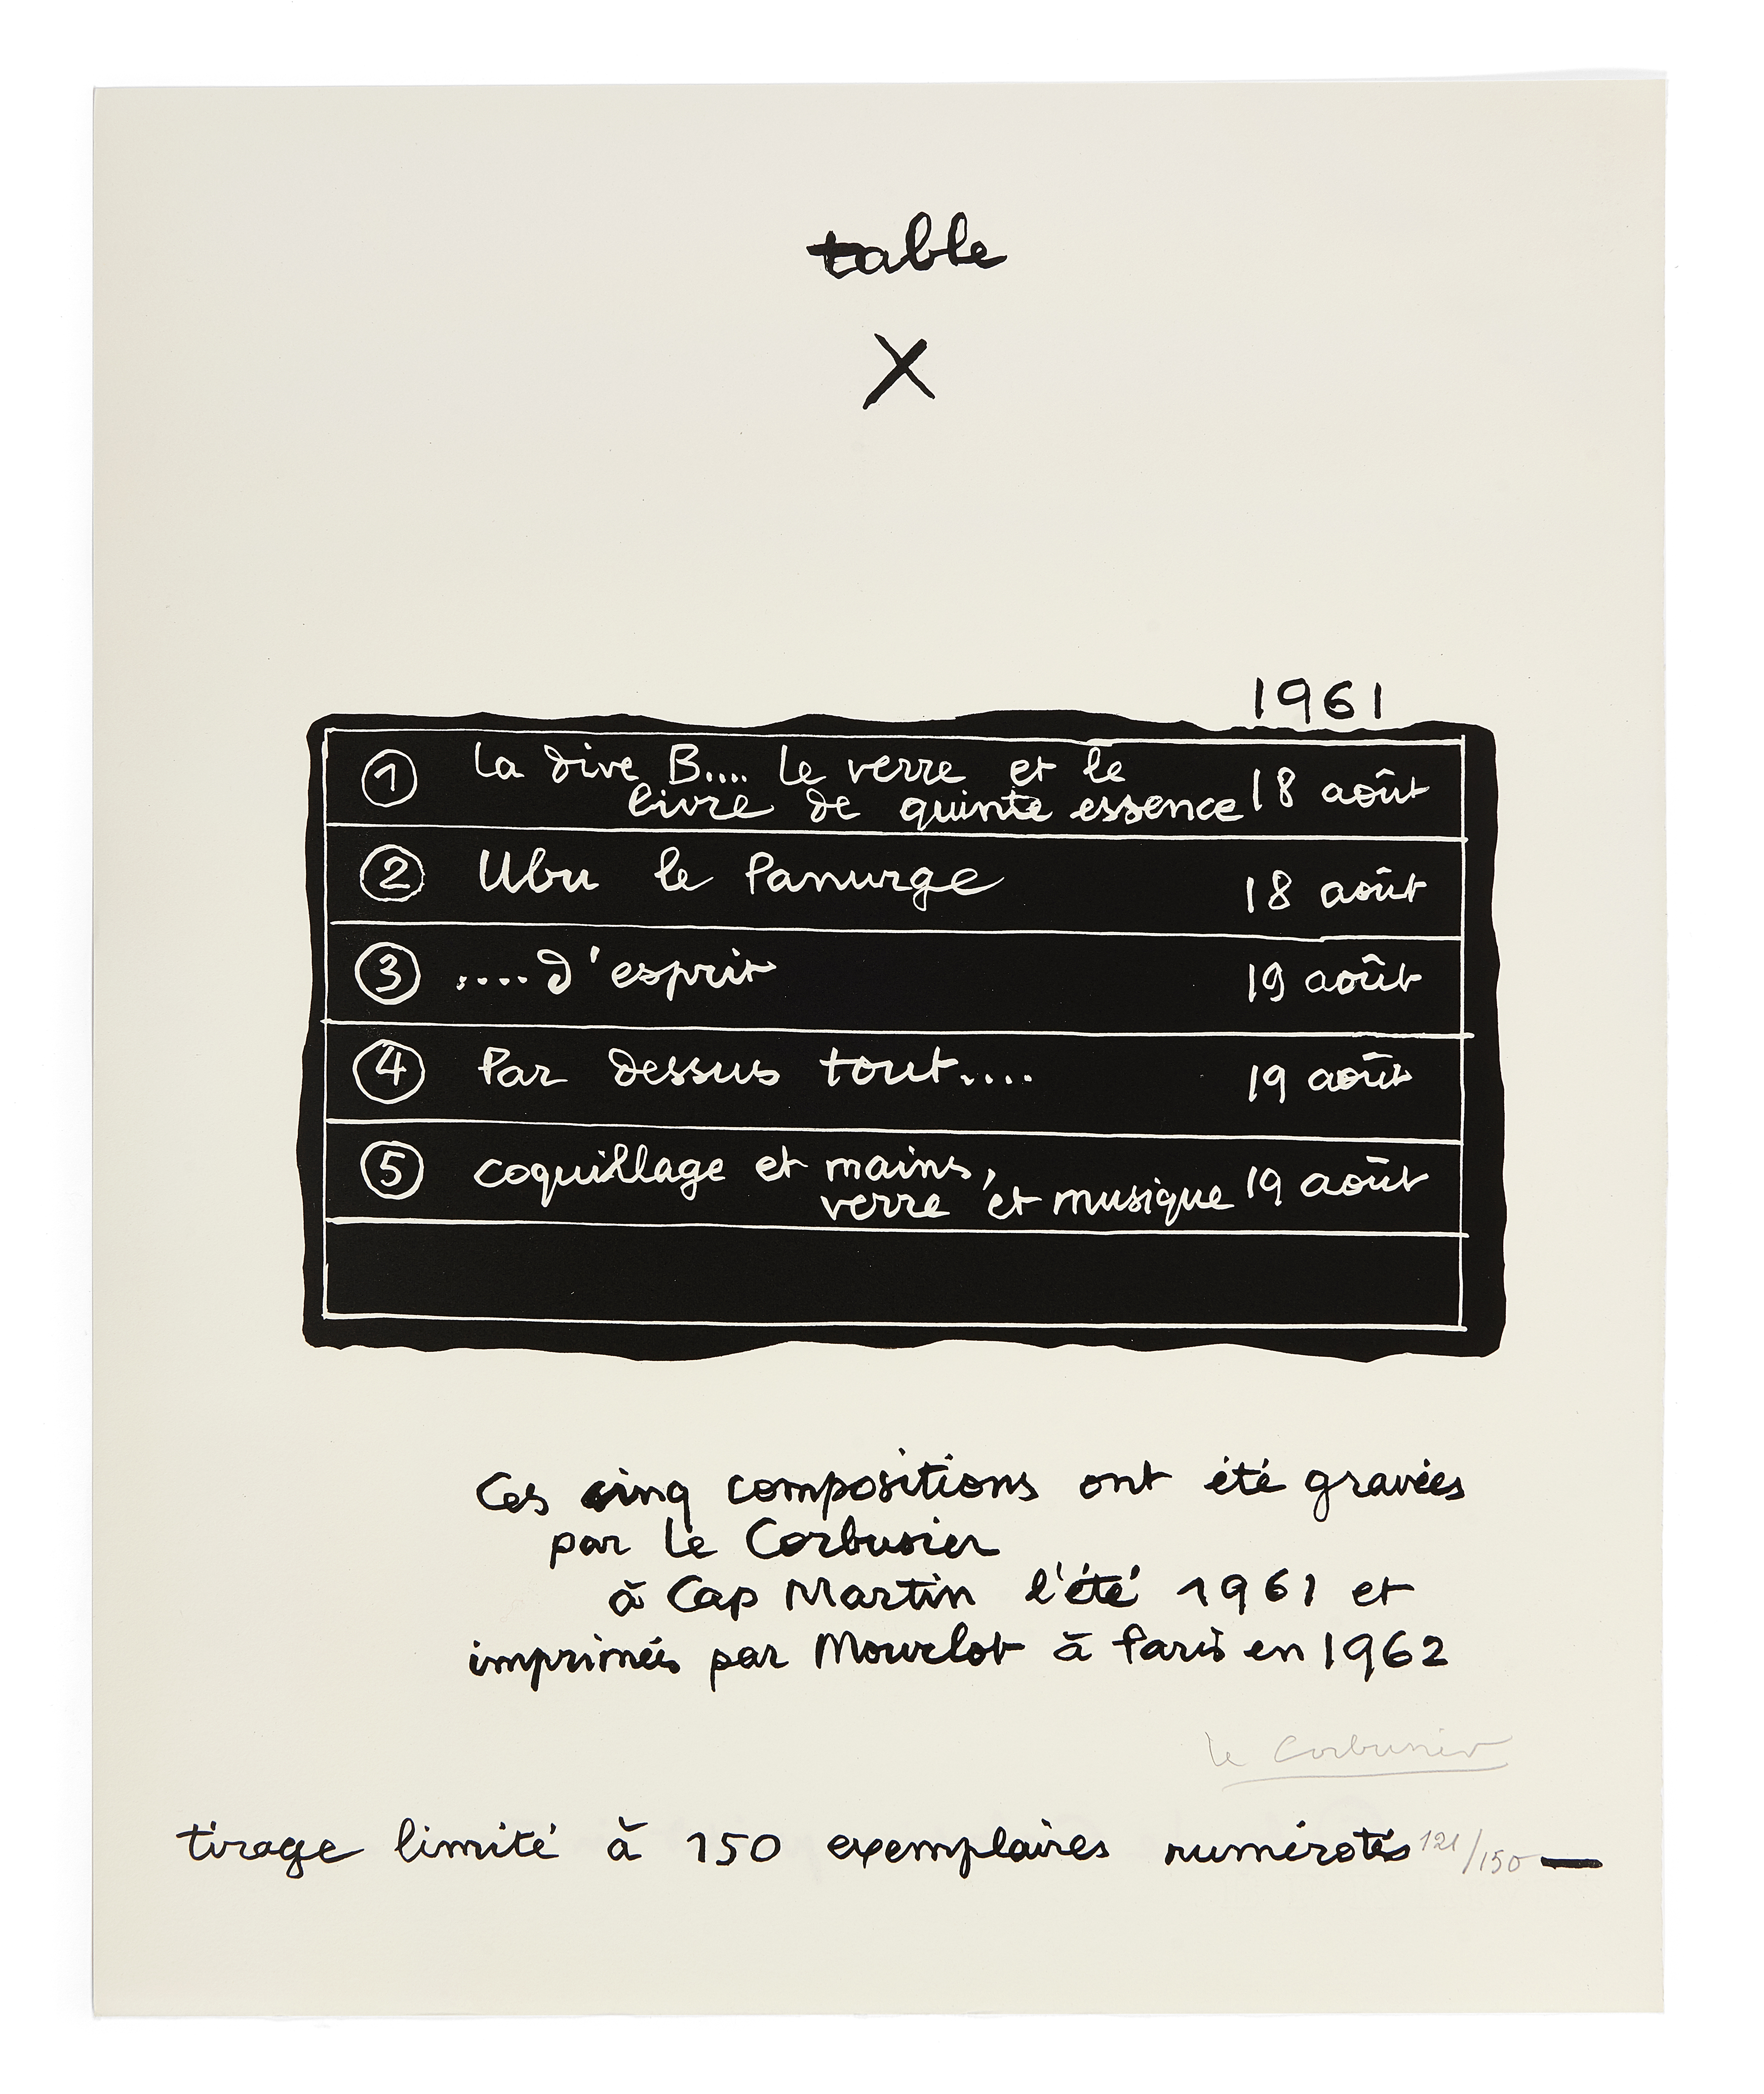 table
X
1961
1 la dive B.... le verre et le
livre de quinte essence 18 août
2 Ubu le Panurge 18 août
3 ....d'esprit 19 août
4 Par dessus tout.... 19 août
5 coquillage et mains,
verre et musique 19 août
Ces cinq compositions ont été gravées
par Le Corbusier
à Cap Martin l'été 1961 et
imprimées par Mourlot à Paris en 1962
Le Corbusier
tirage limité à 150 exemplaires numérotés 121/150